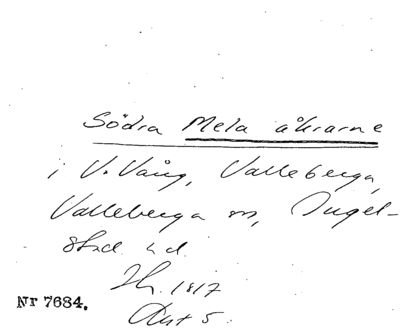 Södra Mela åkrarne
i V. Vång, Valleberga,
Valleberga sn, Ingel-
stad hd.
1817
Akt 5.
Nr 7684.